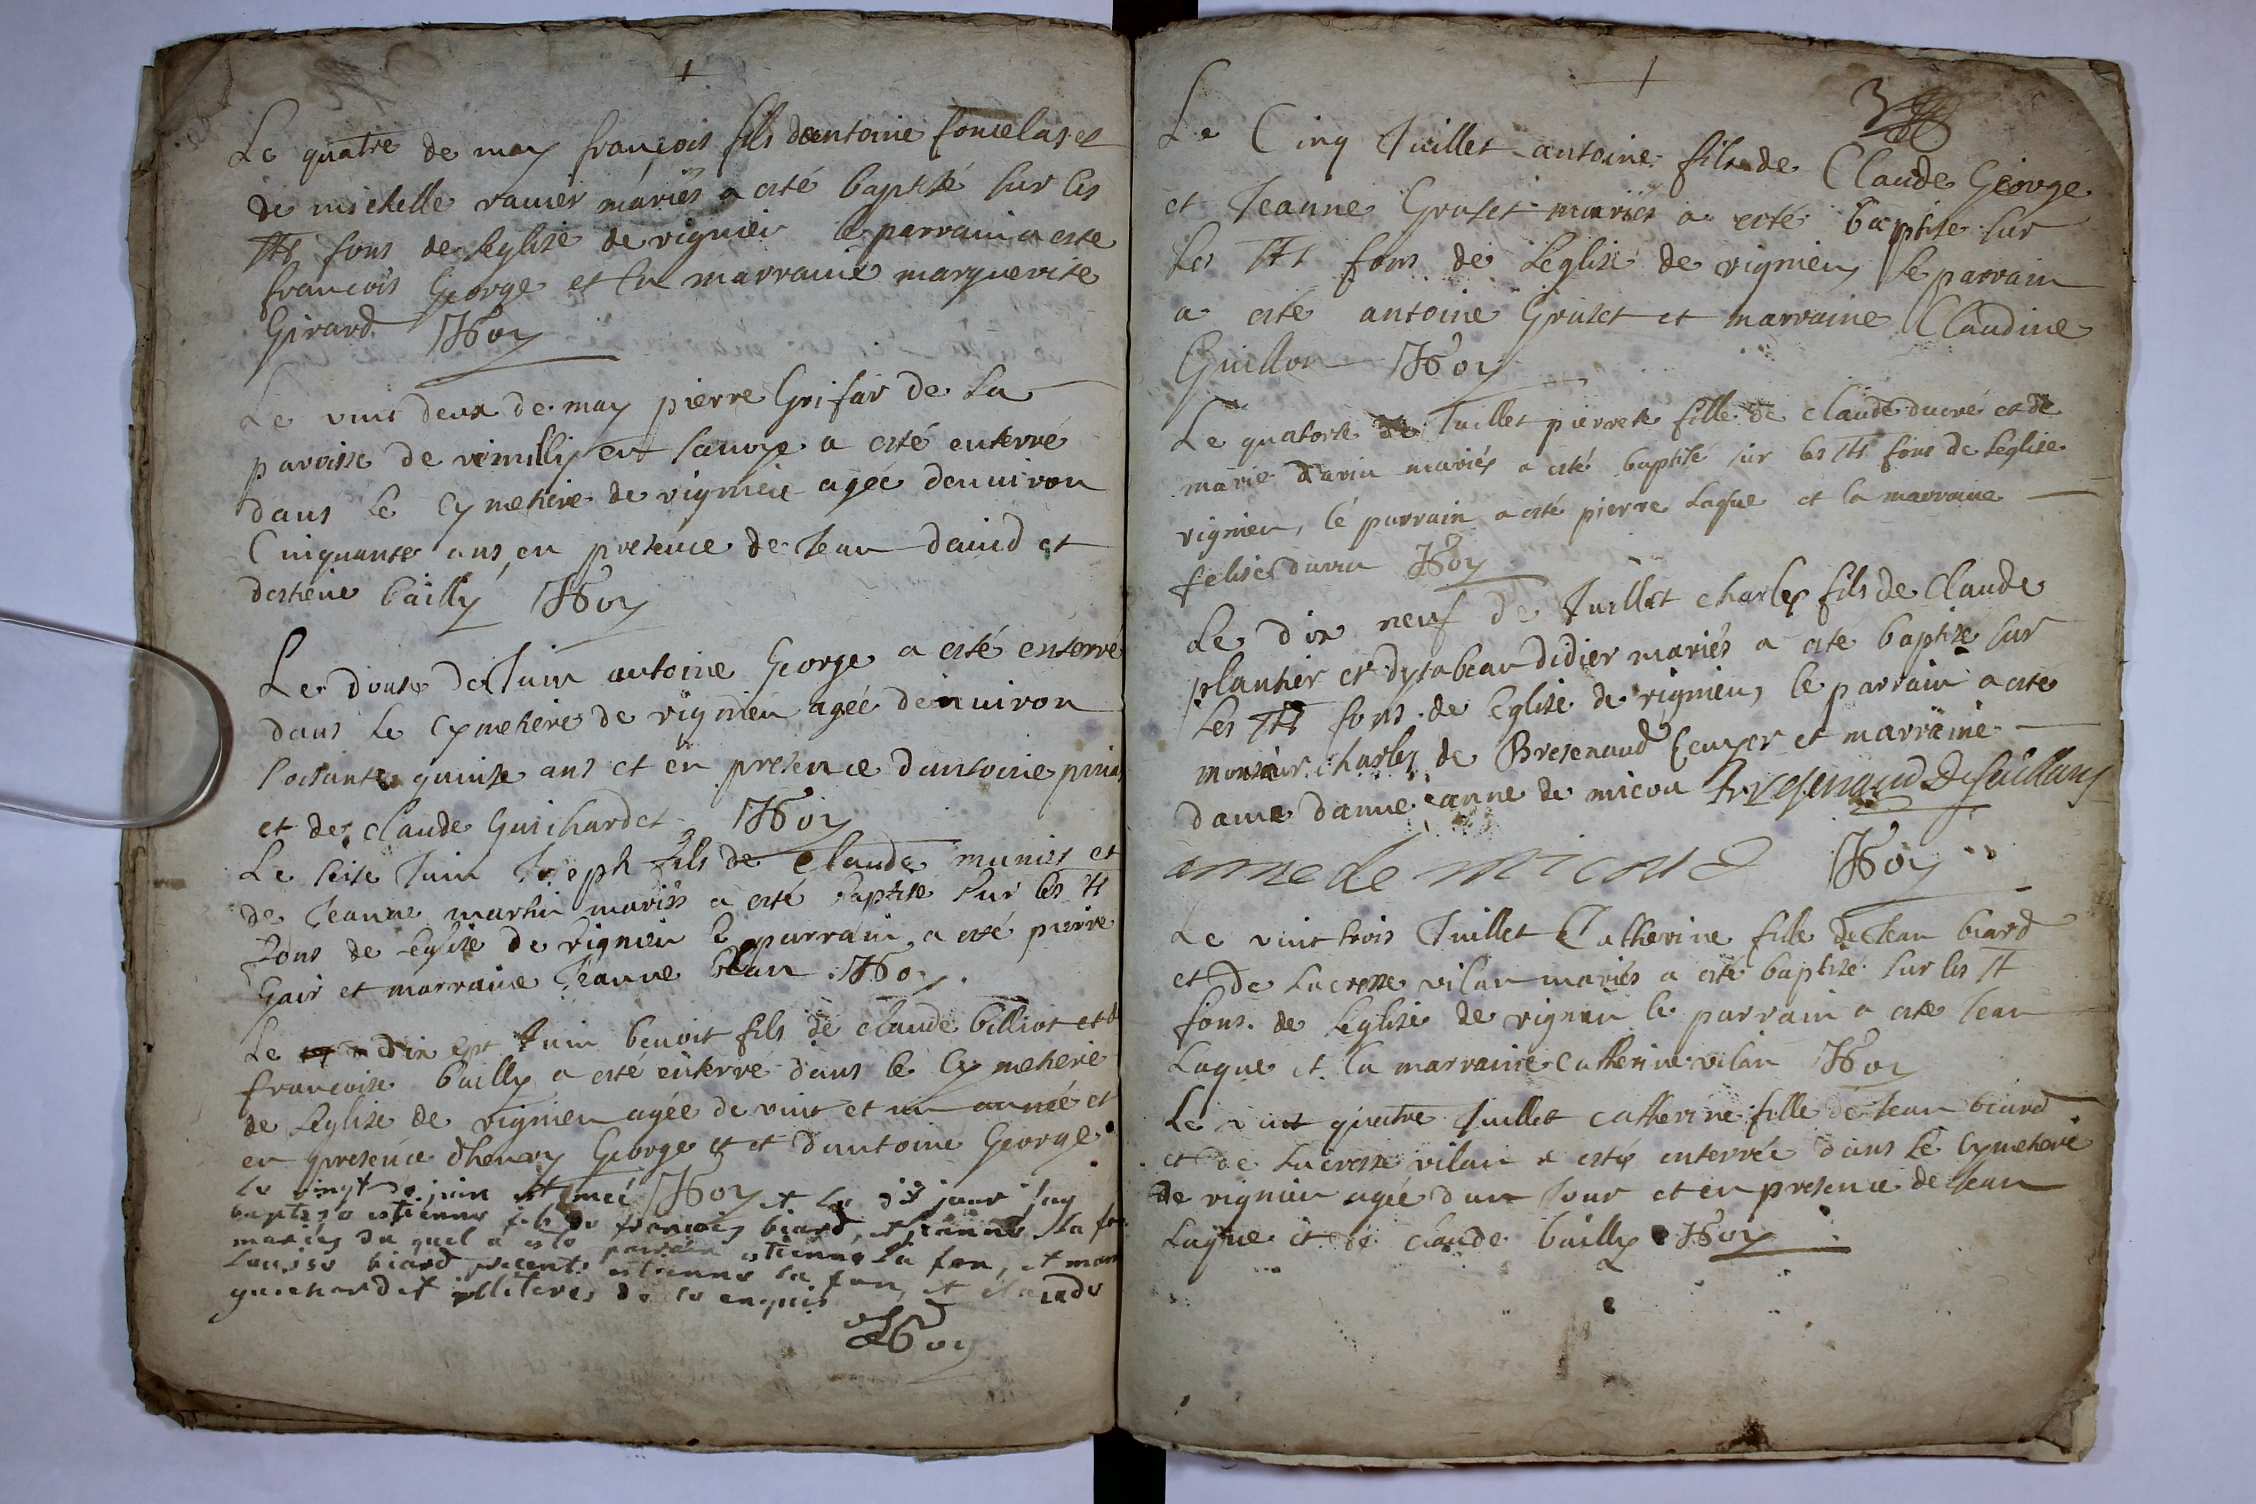 Le quatre de may françois fils dantoine foncelas et
de michelle ravier mariés a esté baptisé sur les
sts fons de leglise de vignieu le parrain a este
françois George et la marraine marguerite
Girard Hoy
Le vint deux de may pierre Grifar de la
paroisse de rimilly en savoye a esté enterré
dans le Cymetiere de vignieu agée denuiron
Cinquante ans, en presence de Jean dauid et
destiene bailly Hoy
Le douse de Juin antoine George a esté enterré
dans le Cymetiere de vignieu agée denuiron
soisante quinse ans et en presence dantoine
et de claude Guichardet Hoy
Le seise Juin Joseph fils de claude munier et
de Jeanne martin mariés a esté baptise sur les st
fons de leglise de vignieu le parrain a esté pierre
Gair et marraine Jeanne blan Hoy
Le dix sept Juin benoit fils de claude billiot et d
françoise bailly a esté enterré dans le Cymetiere
de leglise de vignieu agée de vint et un année et
en presence dhenry George et et dantoine George
Le vingt de juin est Hoy et le dis jour jay
baptiso estienne fils de francois biard, et jeanne la
mariés du quel a esto parrain estienne la fon, et mar
Louisse biard presents estienne la fon, et claude
guichardet illiteres de ce enquis
Hoy
3
Le Cinq Juillet antoine fils de Claude George
et Jeanne Gruset mariés a esté baptise sur
les sts fons de leglise de vignieu le parrain
a esté antoine Gruset et marraine Claudine
Guillon Hoy
Le quatorse Juillet pierrete fille de claude ducré et de
marie davin mariés a esté baptisé sur les sts fons de leglise
vignieu, le parrain a esté pierre Laque et la marraine
felise davin Hoy
Le dix neuf de Juillet charles fils de Claude
plantier et dysabeau didier mariés a esté baptise sur
les sts fons de leglise de vignieu, le parrain a este
monsieur charles de Bresenaud Ecuyer et marraine
dame danne anne de micou Bresenaud De
anne de micou Hoy
Le vint trois Juillet Catherine fille de Jean biard
et de Lucresse vilan mariés a esté baptisé sur les st
fons de leglise de vignieu le parrain a este Jean
Laque et la marraine catherine vilan Hoy
Le vint quatre Juillet catherine fille de Jean biard
et de Lucresse vilan a estés enterrée dans le Cymetiere
de vignieu agée dun Jour et en presence de Jean
Laque et de claude bailly Hoy